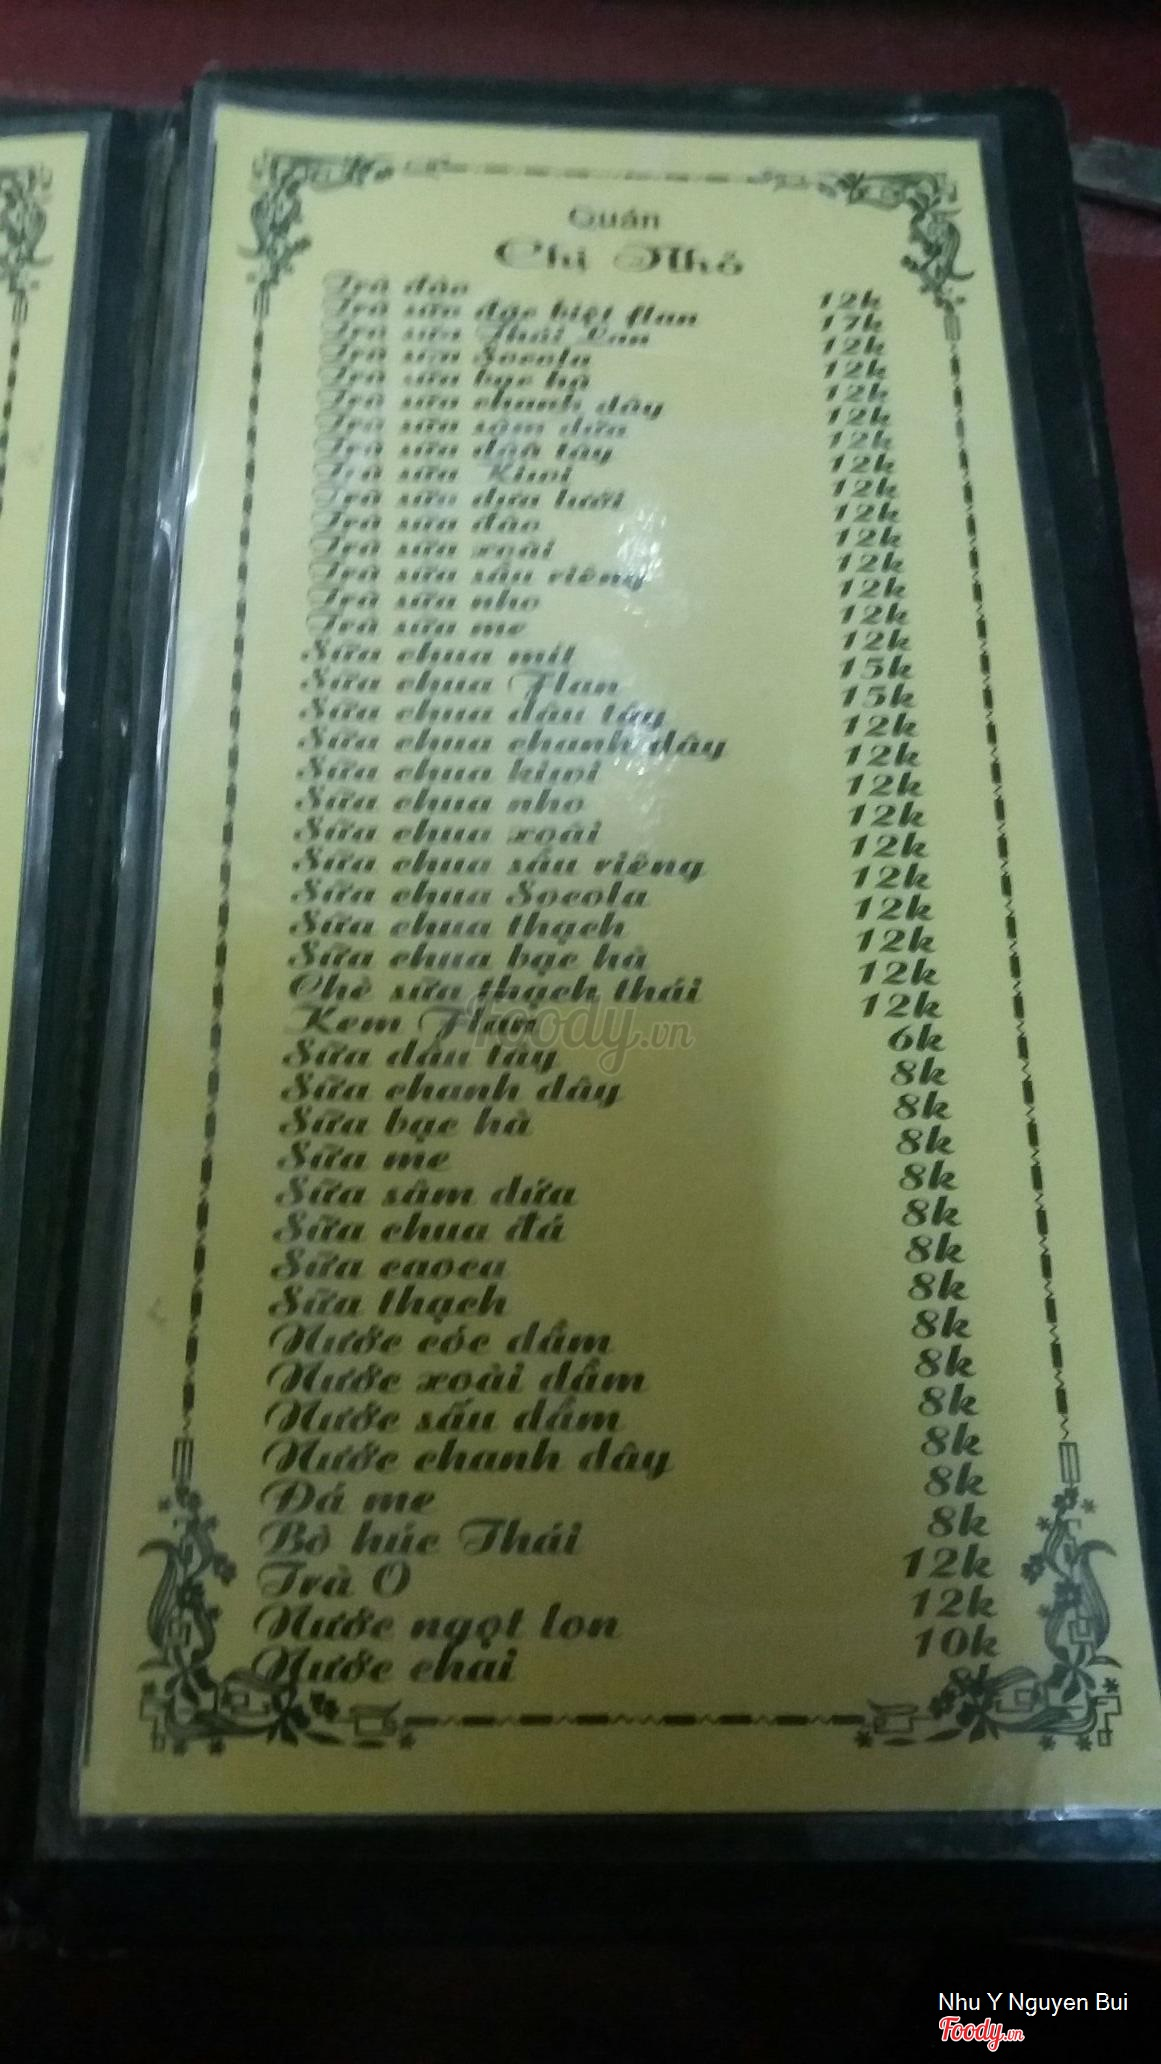 Quán
Chị Nhỏ
Trà đào 12k
Trà sữa đặc biệt flan 17k
Trà sữa Thái Lan 12k
Trà sữa Socola 12k
Trà sữa bạc hà 12k
Trà sữa chanh dây 12k
Trà sữa sâm dứa 12k
Trà sữa dâu tây 12k
Trà sữa Kiwi 12k
Trà sữa dưa lưới 12k
Trà sữa đào 12k
Trà sữa xoài 12k
Trà sữa sầu riêng 12k
Trà sữa nho 12k
Trà sữa me 12k
Sữa chua mít 15k
Sữa chua Flan 15k
Sữa chua dâu tây 12k
Sữa chua chanh dây 12k
Sữa chua kiwi 12k
Sữa chua nho 12k
Sữa chua xoài 12k
Sữa chua sầu riêng 12k
Sữa chua Socola 12k
Sữa chua thạch 12k
Sữa chua bạc hà 12k
Chè sữa thạch thái 12k
Kem Flan 6k
Sữa dâu tây 8k
Sữa chanh dây 8k
Sữa bạc hà 8k
Sữa me 8k
Sữa sâm dứa 8k
Sữa chua đá 8k
Sữa cacca 8k
Sữa thạch 8k
Nước cóc dầm 8k
Nước xoài dầm 8k
Nước sấu dầm 8k
Nước chanh dây 8k
Đá me 8k
Bò húc Thái 12k
Trà O 12k
Nước ngọt lon 10k
Nước chai 8k
Foody.vn
Nhu Y Nguyen Bui
Foody.vn